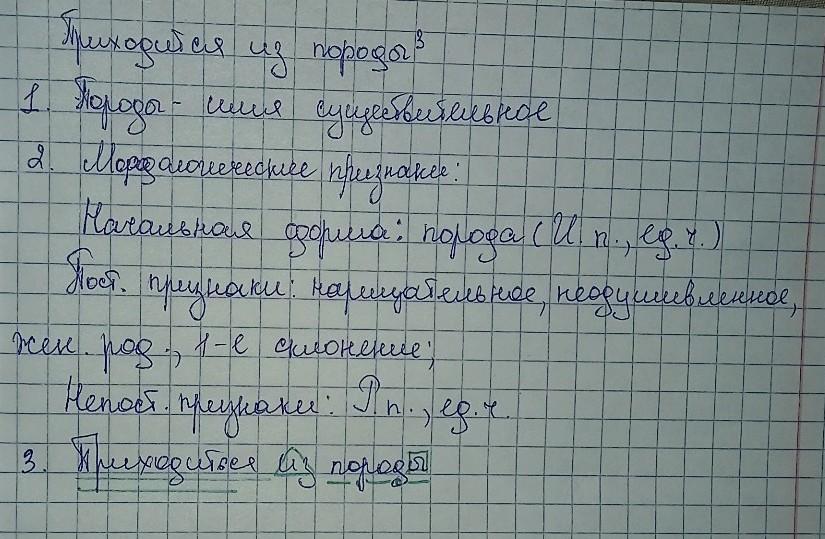 Приходится из породы³
1. Породы - имя существительное
2. Морфологические признаки:
Начальная форма: порода (И. п., ед. ч.)
Пост. признаки: нарицательное, неодушевленное,
жен. род., 1-е склонение;
Непост. признаки: Р п., ед. ч.
3. Приходиться из породы